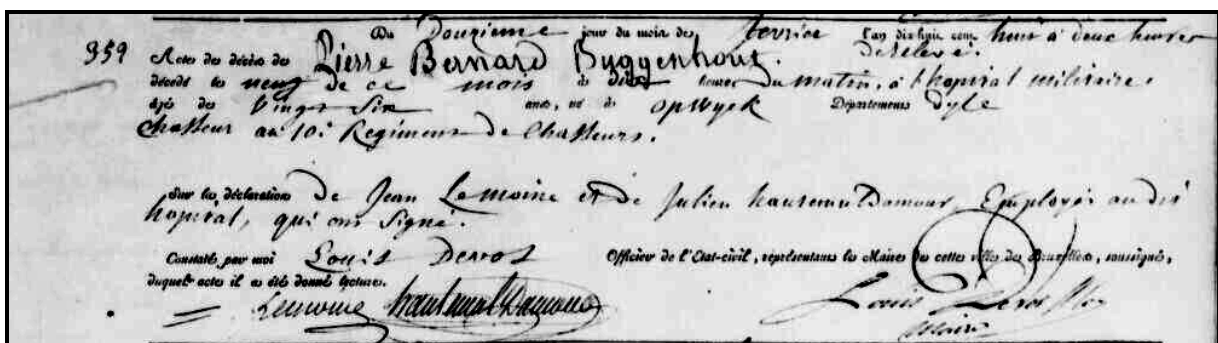 Du Douzieme jour du mois de fevrier l'an dix-huit cent huit à deux heures
de relevé.
359 Acte de décès de Pierre Bernard Buggenhout.
décédé le neuf de ce mois à dix heures du matin, à l'hopital militaire.
âgé de Vingt Six ans, né à opwyck Département Dyle
Chasseur au 10e Regiment de Chasseurs.
Sur la déclaration de Jean Lemoine et de Julien hautenau Damour, Employés au dit
hopital, qui ont signé.
Constaté, par moi Louis Devos Officier de l'État-civil, représentant le Maire de cette ville de Bruxelles, soussigné,
duquel acte il a été donné lecture.
Lemoine Louis Devos